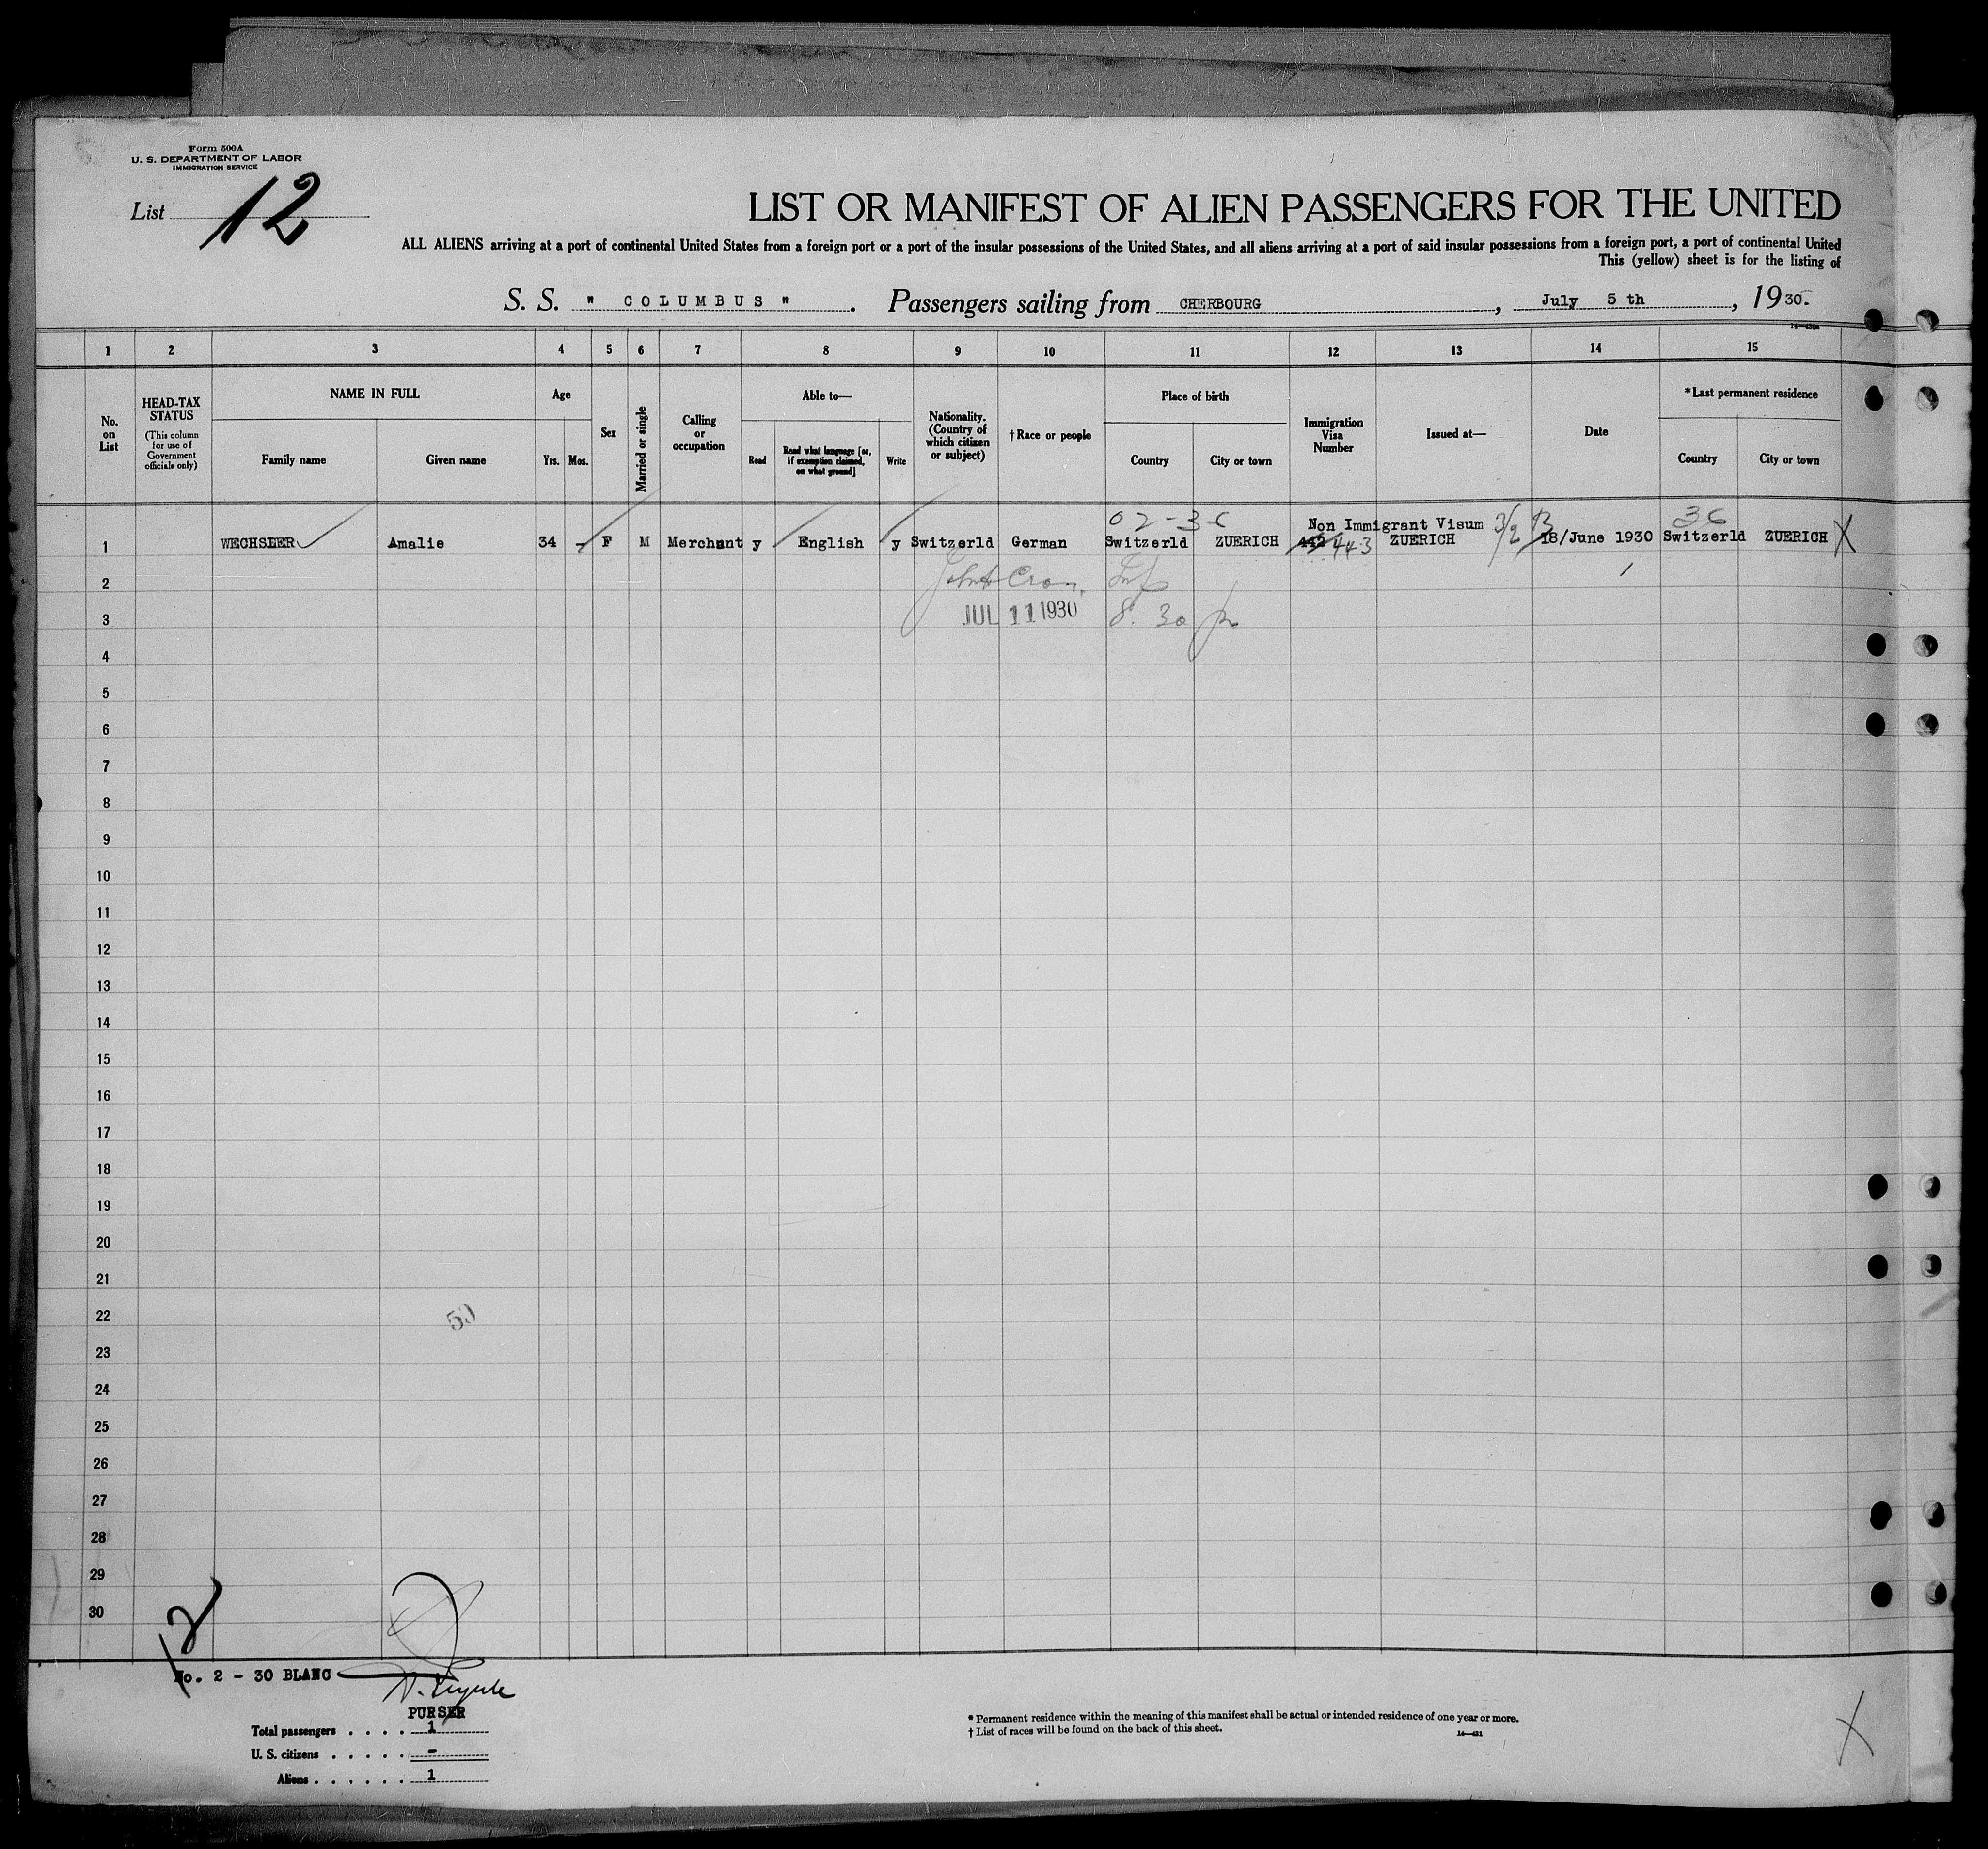 Form 500A
U. S. DEPARTMENT OF LABOR
IMMIGRATION SERVICE
List 12
LIST OR MANIFEST OF ALIEN PASSENGERS FOR THE UNITED
ALL ALIENS arriving at a port of continental United States from a foreign port or a port of the insular possessions of the United States, and all aliens arriving at a port of said insular possessions from a foreign port, a port of continental United
This (yellow) sheet is for the listing of
S. S. " COLUMBUS " . Passengers sailing from CHERBOURG , July 5 th , 1930.
1 2 3 4 5 6 7 8 9 10 11 12 13 14 15
No. on List
HEAD-TAX STATUS
(This column for use of Government officials only)
NAME IN FULL
Family name
Given name
Age
Yrs. Mos.
Sex
Married or single
Calling or occupation
Able to—
Read
Read what language [or, if exemption claimed, on what ground]
Write
Nationality. (Country of which citizen or subject)
†Race or people
Place of birth
Country
City or town
Immigration Visa Number
Issued at—
Date
*Last permanent residence
Country
City or town
02-36
Non Immigrant Visum 3/2 B
36
1 WECHSLER Amalie 34 - F M Merchant y English y Switzerld German Switzerld ZUERICH 442 443 ZUERICH 18/June 1930 Switzerld ZUERICH X
2
3 JUL 11 1930 8.30
4
5
6
7
8
9
10
11
12
13
14
15
16
17
18
19
20
21
22
50
23
24
25
26
27
28
29
30
12
No. 2 - 30 BLANC
PURSER
Total passengers . . . . 1
U. S. citizens . . . . . -
Aliens . . . . . . 1
* Permanent residence within the meaning of this manifest shall be actual or intended residence of one year or more.
† List of races will be found on the back of this sheet.
14—421
X